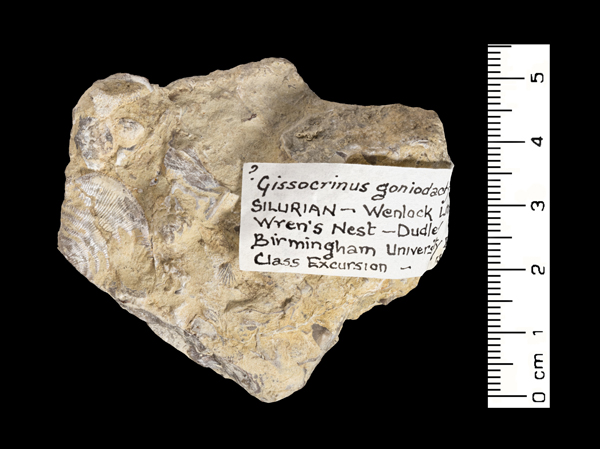 ?
Gissocrinus goniodac
SILURIAN – Wenlock
Wren's Nest – Dudle
Birmingham Universit
Class Excursion –
5
4
3
2
1
0 cm